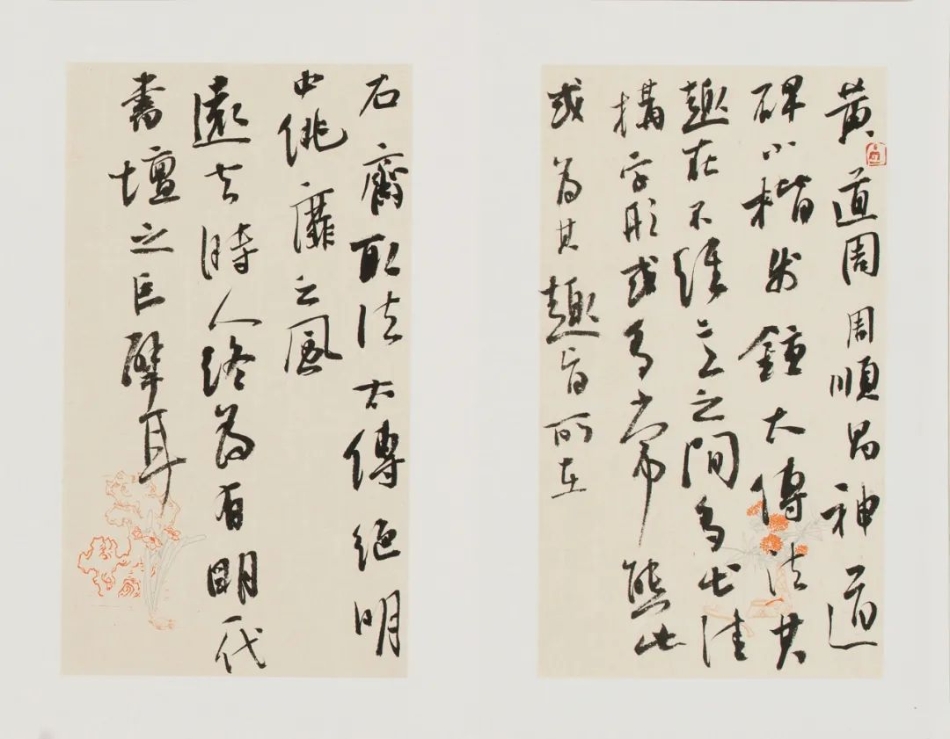 黄道周周順昌神道
碑小楷鍾太傅法其
趣在不經意之間多佳
構字形或常態此
或為其趣旨所在
石齋取法太傅絕明
中佻靡之風
遠去時人終為有明一代
書壇之巨擘耳